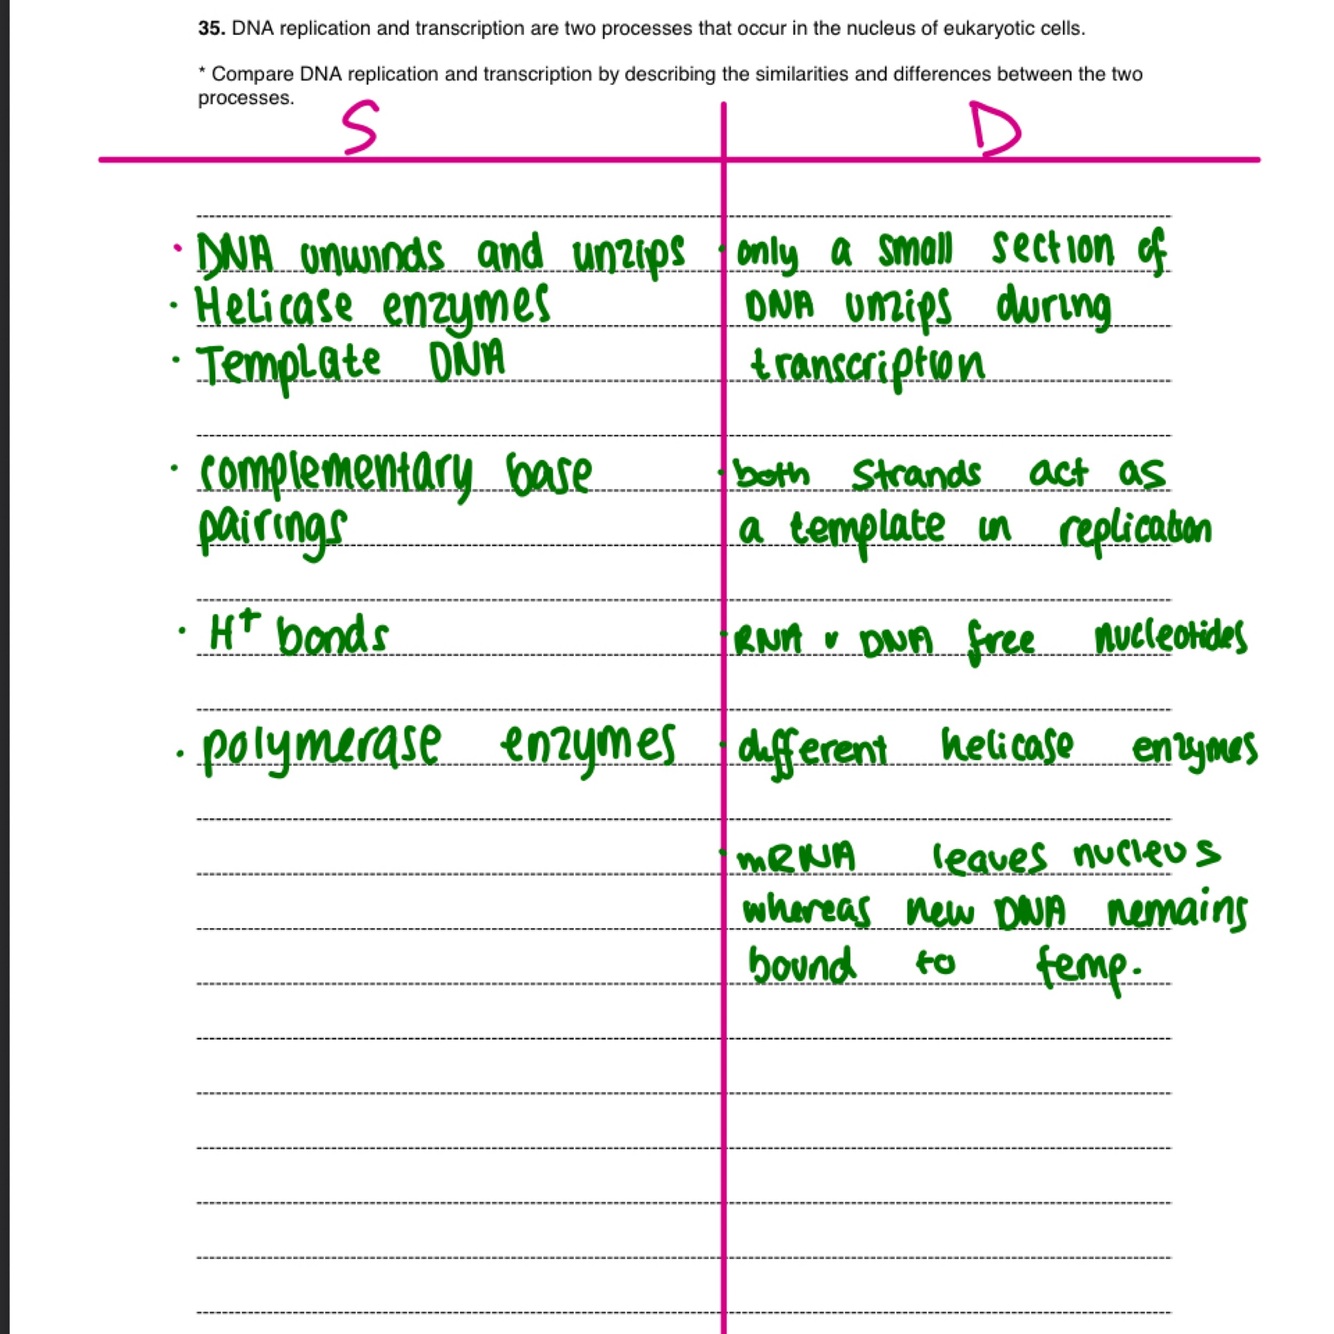 35. DNA replication and transcription are two processes that occur in the nucleus of eukaryotic cells.
* Compare DNA replication and transcription by describing the similarities and differences between the two
processes.
S
D
· DNA unwinds and unzips
· Helicase enzymes
· Template DNA
· complementary base
pairings
· H+ bonds
· polymerase enzymes
· only a small section of
DNA unzips during
transcription
· both strands act as
a template in replication
· RNA v DNA free nucleotides
· different helicase enzymes
· mRNA leaves nucleus
whereas new DNA remains
bound to temp.